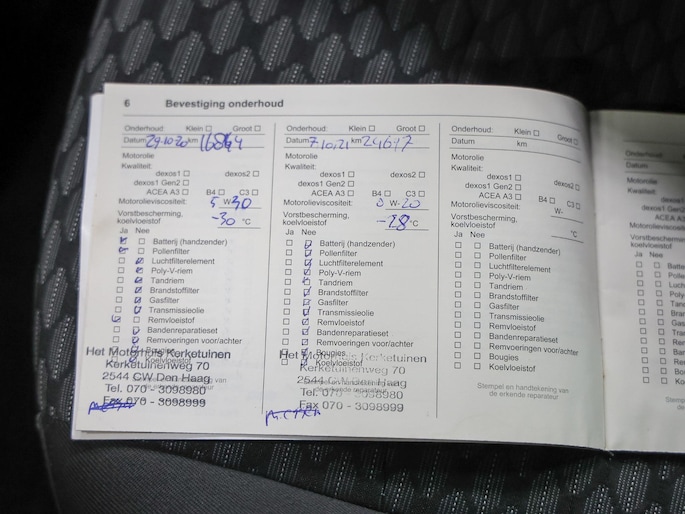 6 Bevestiging onderhoud
Onderhoud: Klein Groot
Datum 29.10.20 km 16844
Motorolie
Kwaliteit:
dexos1 dexos2
dexos1 Gen2
ACEA A3 B4 C3
Motorolieviscositeit: 5 W-30
Vorstbescherming,
koelvloeistof -30 °C
Ja Nee
Batterij (handzender)
Pollenfilter
Luchtfilterelement
Poly-V-riem
Tandriem
Brandstoffilter
Gasfilter
Transmissieolie
Remvloeistof
Bandenreparatieset
Remvoeringen voor/achter
Bougies
Koelvloeistof
Het Motorhuis Kerketuinen
Kerketuinenweg 70
2544 CW Den Haag
Tel. 070 - 3098980
Fax 070 - 3098999
Onderhoud: Klein Groot
Datum 7.10.21 km 24647
Motorolie
Kwaliteit:
dexos1 dexos2
dexos1 Gen2
ACEA A3 B4 C3
Motorolieviscositeit: 0 W-20
Vorstbescherming,
koelvloeistof -28 °C
Ja Nee
Batterij (handzender)
Pollenfilter
Luchtfilterelement
Poly-V-riem
Tandriem
Brandstoffilter
Gasfilter
Transmissieolie
Remvloeistof
Bandenreparatieset
Remvoeringen voor/achter
Bougies
Koelvloeistof
Het Motorhuis Kerketuinen
Kerketuinenweg 70
2544 CW Den Haag
Tel. 070 - 3098980
Fax 070 - 3098999
Onderhoud: Klein Groot
Datum km
Motorolie
Kwaliteit:
dexos1 dexos2
dexos1 Gen2
ACEA A3 B4 C3
Motorolieviscositeit: W-
Vorstbescherming,
koelvloeistof °C
Ja Nee
Batterij (handzender)
Pollenfilter
Luchtfilterelement
Poly-V-riem
Tandriem
Brandstoffilter
Gasfilter
Transmissieolie
Remvloeistof
Bandenreparatieset
Remvoeringen voor/achter
Bougies
Koelvloeistof
Stempel en handtekening van
de erkende reparateur
Onderhoud:
Datum
Motorolie
Kwaliteit:
dexos1
dexos1 Gen2
ACEA A3
Motorolieviscositeit
Vorstbescherming
koelvloeistof
Ja Nee